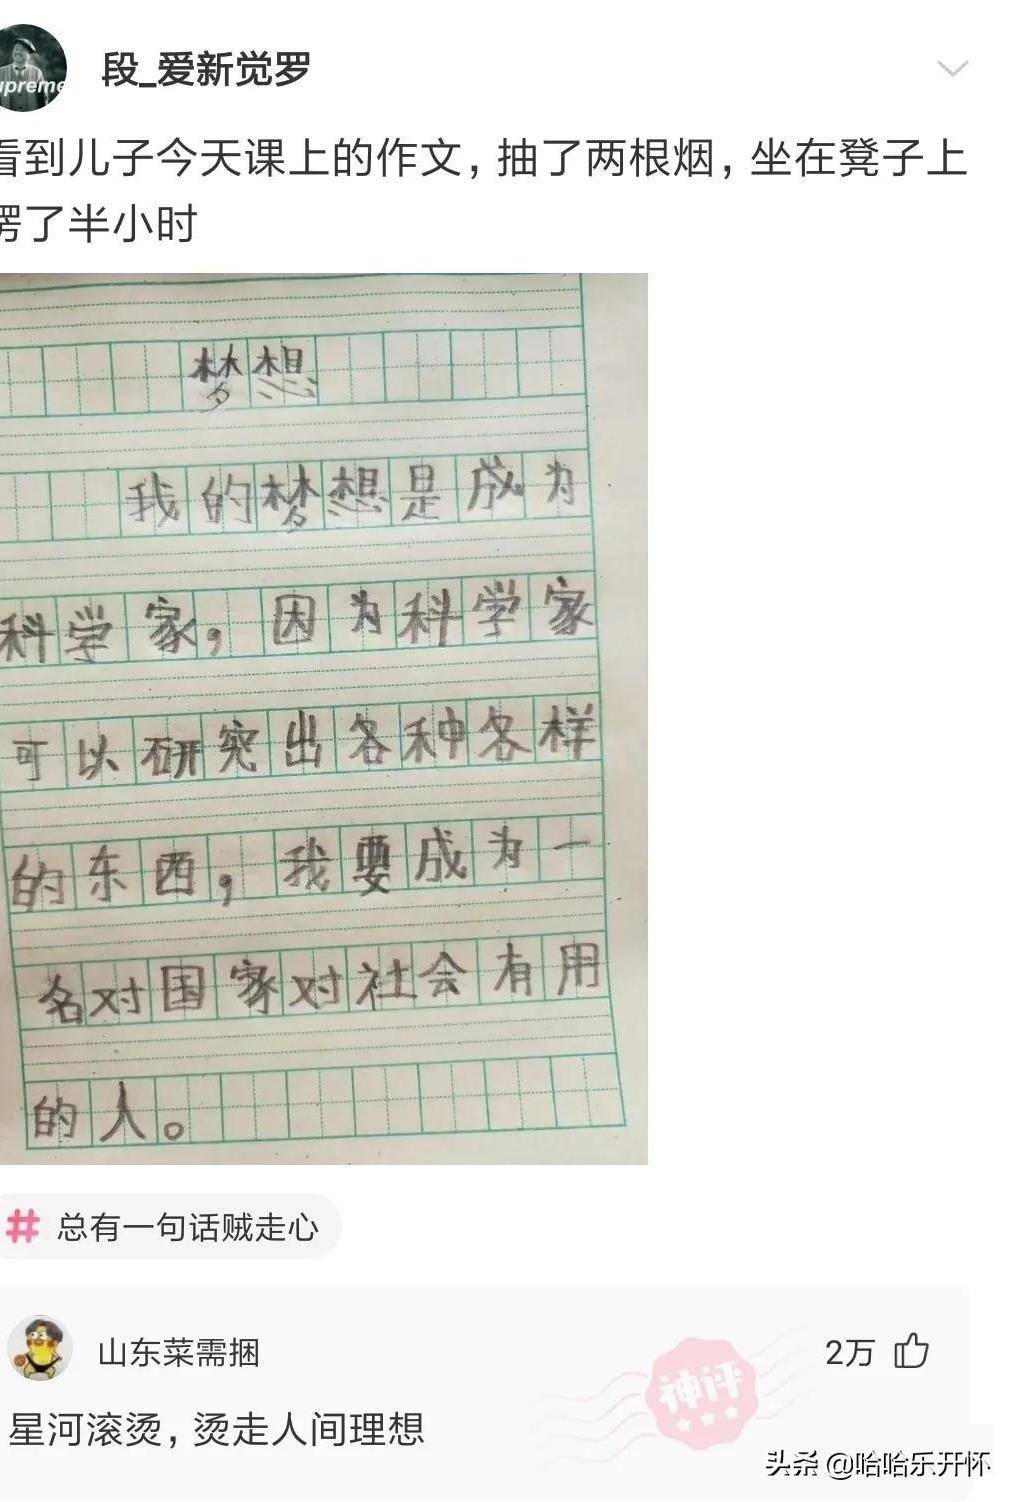 upreme
段_爱新觉罗
看到儿子今天课上的作文，抽了两根烟，坐在凳子上
愣了半小时
梦想
我的梦想是成为
科学家，因为科学家
可以研究出各种各样
的东西，我要成为一
名对国家对社会有用
的人。
# 总有一句话贼走心
山东菜需捆
2万
神评
星河滚烫，烫走人间理想
头条 @哈哈乐开怀